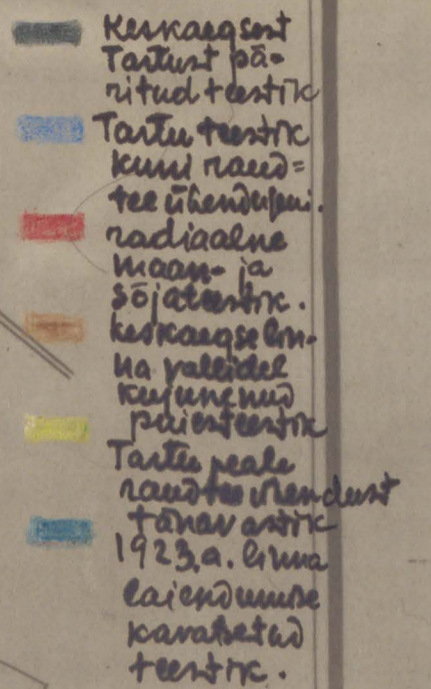 Keskaegsest
Tartust pä=
ritud teestik
Tartu teestik
kuni raud=
tee ühenduseni.
radiaalne
maan- ja
sõjateestik.
keskaegse lin-
na vallidel
kujunenud
puiesteestik
Tartu peale
raudtee ühendust
tänavastik
1923.a. linna
laiendumise
kavatsetud
teestik.